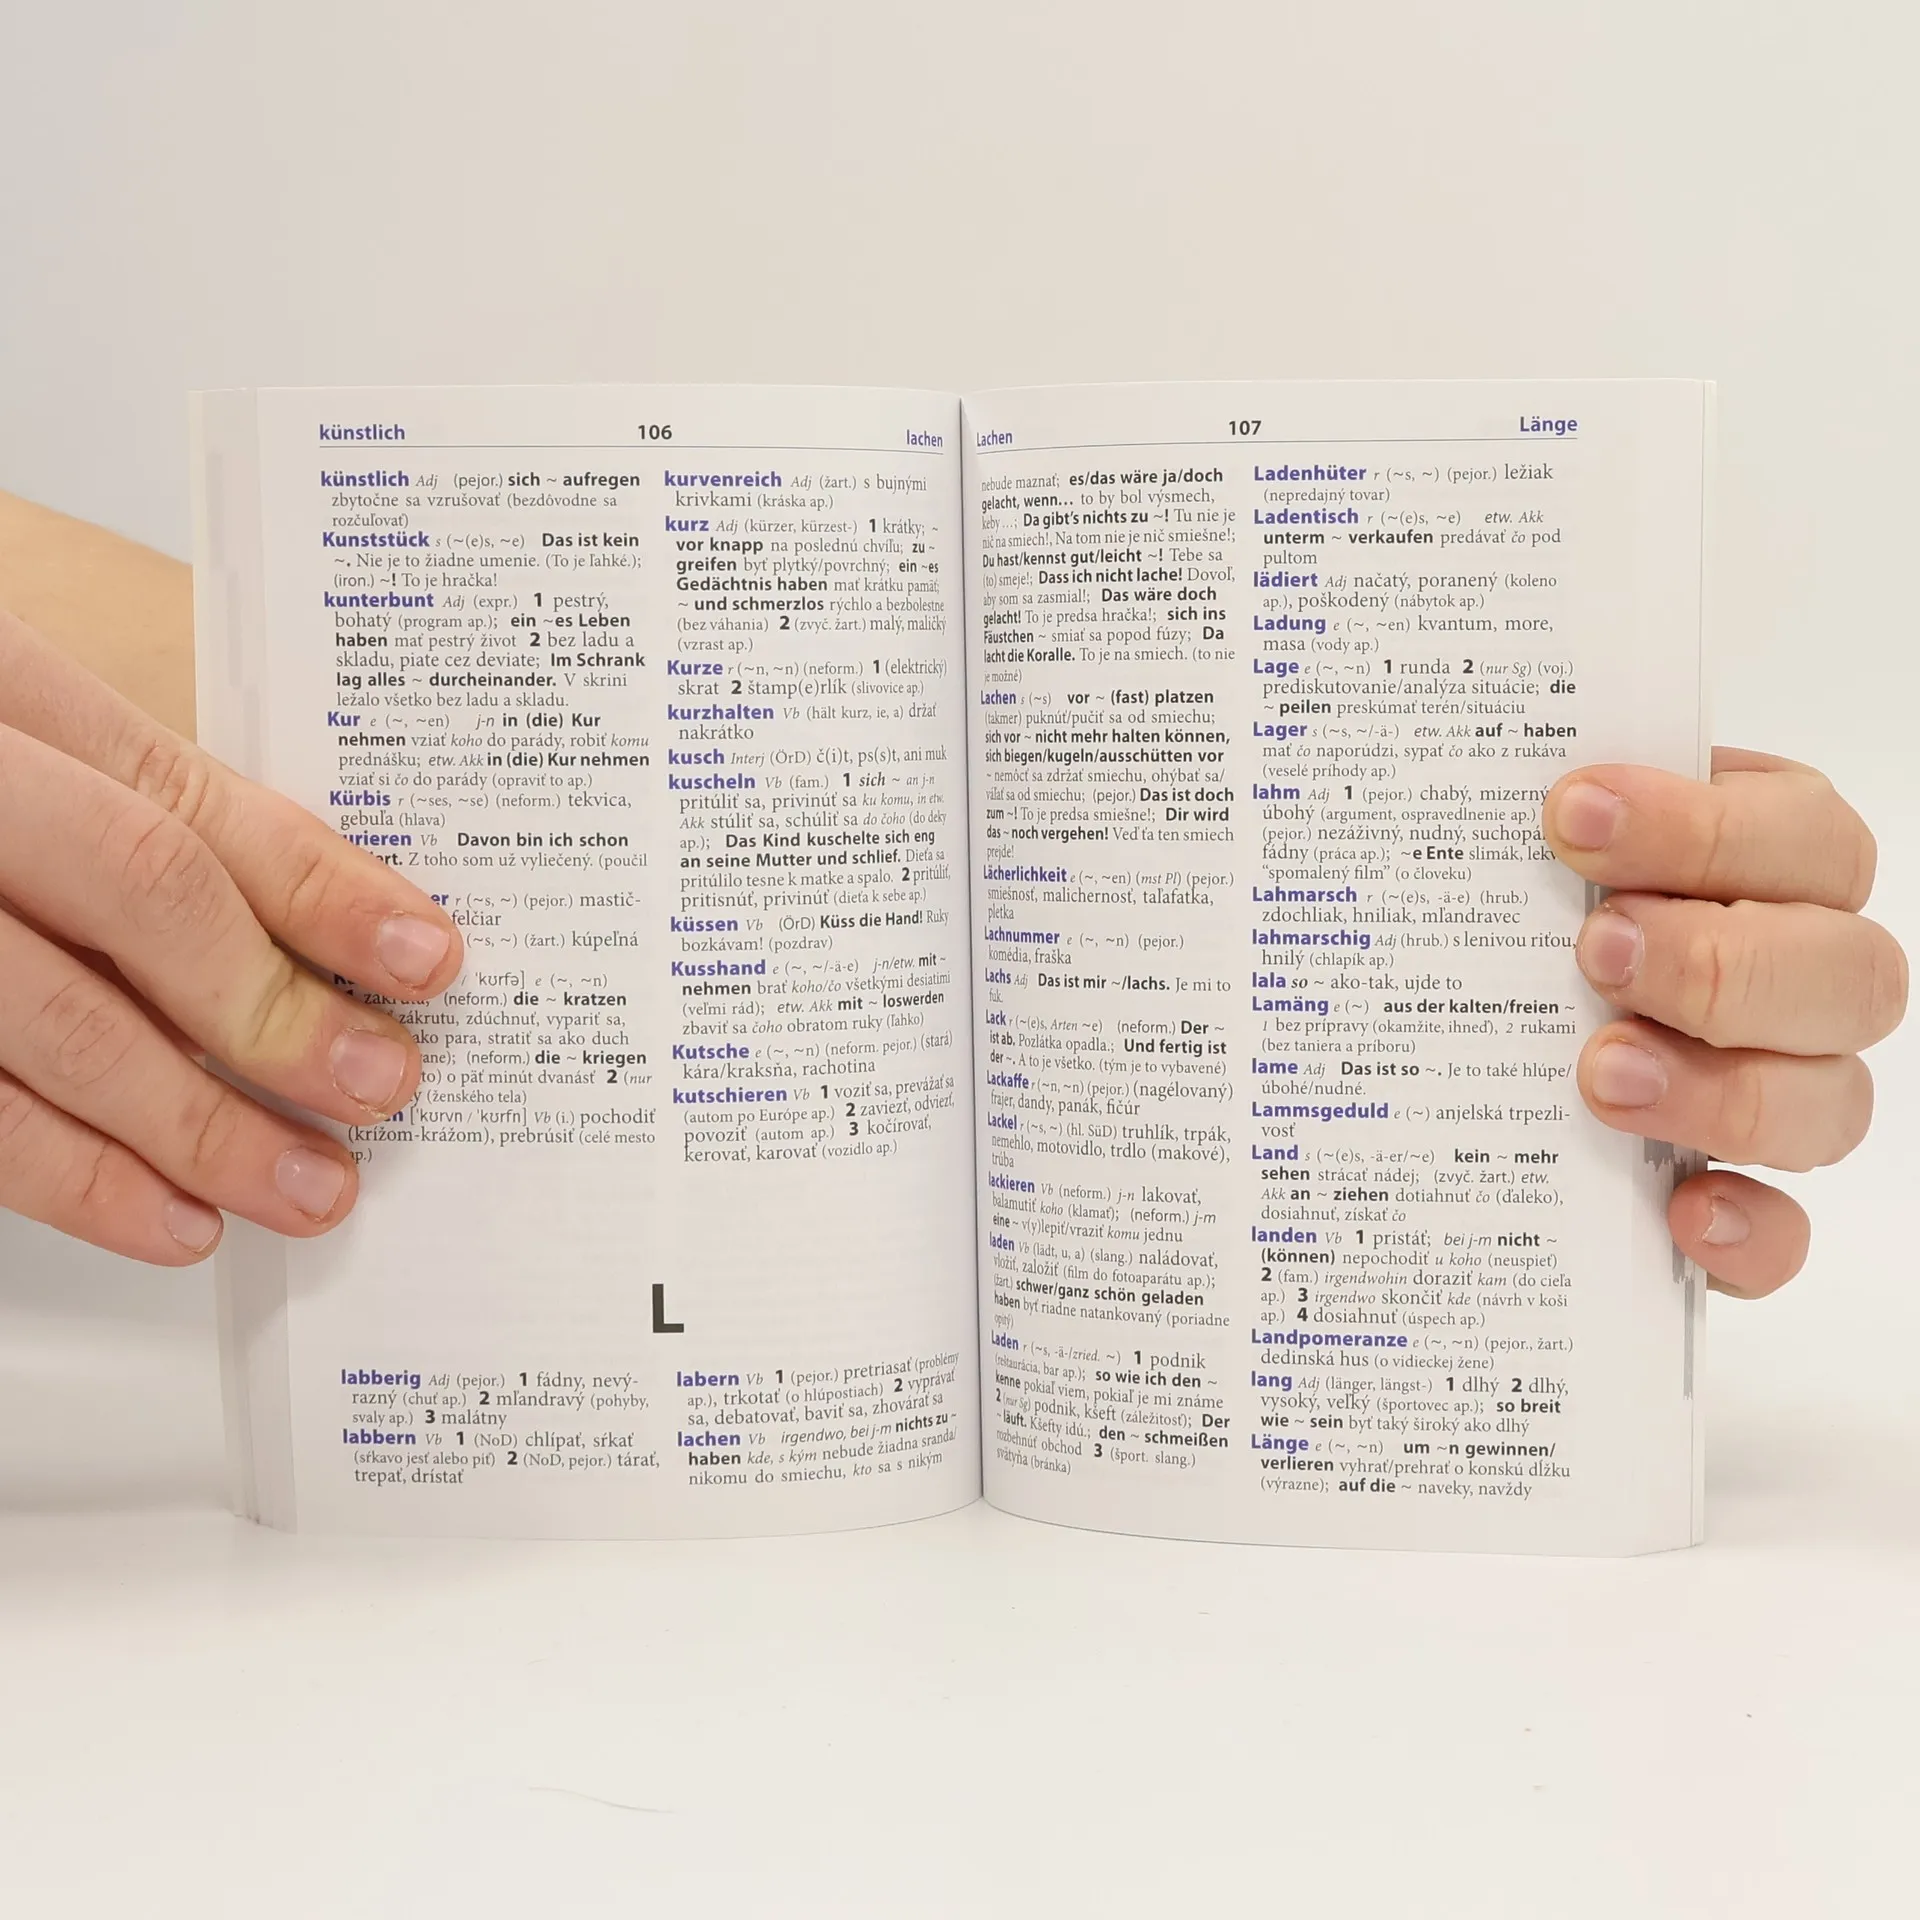 künstlich 106 lachen
künstlich Adj (pejor.) sich ~ aufregen
zbytočne sa vzrušovať (bezdôvodne sa
rozčuľovať)
Kunststück s (~(e)s, ~e) Das ist kein
~. Nie je to žiadne umenie. (To je ľahké.);
(iron.) ~! To je hračka!
kunterbunt Adj (expr.) 1 pestrý,
bohatý (program ap.); ein ~es Leben
haben mať pestrý život 2 bez ladu a
skladu, piate cez deviate; Im Schrank
lag alles ~ durcheinander. V skrini
ležalo všetko bez ladu a skladu.
Kur e (~, ~en) j-n in (die) Kur
nehmen vziať koho do parády, robiť komu
prednášku; etw. Akk in (die) Kur nehmen
vziať si čo do parády (opraviť to ap.)
Kürbis r (~ses, ~se) (neform.) tekvica,
gebuľa (hlava)
urieren Vb Davon bin ich schon
art. Z toho som už vyliečený. (poučil
er r (~s, ~) (pejor.) mastič-
felčiar
(~s, ~) (žart.) kúpeľná
/ 'kʊrfə] e (~, ~n)
(neform.) die ~ kratzen
zákrutu, zdúchnuť, vypariť sa,
ako para, stratiť sa ako duch
ane); (neform.) die ~ kriegen
to) o päť minút dvanásť 2 (nur
y (ženského tela)
n ['kʊrvn / 'kʊrfn] Vb (i.) pochodiť
(krížom-krážom), prebrúsiť (celé mesto
ap.)
kurvenreich Adj (žart.) s bujnými
krivkami (kráska ap.)
kurz Adj (kürzer, kürzest-) 1 krátky; ~
vor knapp na poslednú chvíľu; zu ~
greifen byť plytký/povrchný; ein ~es
Gedächtnis haben mať krátku pamäť;
~ und schmerzlos rýchlo a bezbolestne
(bez váhania) 2 (zvyč. žart.) malý, maličký
(vzrast ap.)
Kurze r (~n, ~n) (neform.) 1 (elektrický)
skrat 2 štamp(e)rlík (slivovice ap.)
kurzhalten Vb (hält kurz, ie, a) držať
nakrátko
kusch Interj (ÖrD) č(i)t, ps(s)t, ani muk
kuscheln Vb (fam.) 1 sich ~ an j-n
pritúliť sa, privinúť sa ku komu, in etw.
Akk stúliť sa, schúliť sa do čoho (do deky
ap.); Das Kind kuschelte sich eng
an seine Mutter und schlief. Dieťa sa
pritúlilo tesne k matke a spalo. 2 pritúliť,
pritisnúť, privinúť (dieťa k sebe ap.)
küssen Vb (ÖrD) Küss die Hand! Ruky
bozkávam! (pozdrav)
Kusshand e (~, ~/-ä-e) j-n/etw. mit ~
nehmen brať koho/čo všetkými desiatimi
(veľmi rád); etw. Akk mit ~ loswerden
zbaviť sa čoho obratom ruky (ľahko)
Kutsche e (~, ~n) (neform. pejor.) (stará)
kára/kraksňa, rachotina
kutschieren Vb 1 voziť sa, prevážať sa
(autom po Európe ap.) 2 zaviezť, odviezť,
povoziť (autom ap.) 3 kočírovať,
kerovať, karovať (vozidlo ap.)
L
labberig Adj (pejor.) 1 fádny, nevý-
razný (chuť ap.) 2 mľandravý (pohyby,
svaly ap.) 3 malátny
labbern Vb 1 (NoD) chlípať, sŕkať
(sŕkavo jesť alebo piť) 2 (NoD, pejor.) tárať,
trepať, drístať
labern Vb 1 (pejor.) pretriasať (problémy
ap.), trkotať (o hlúpostiach) 2 vyprávať
sa, debatovať, baviť sa, zhovárať sa
lachen Vb irgendwo, bei j-m nichts zu ~
haben kde, s kým nebude žiadna sranda/
nikomu do smiechu, kto sa s nikým
Lachen 107 Länge
nebude maznať; es/das wäre ja/doch
gelacht, wenn... to by bol výsmech,
keby...; Da gibt's nichts zu ~! Tu nie je
nič na smiech!, Na tom nie je nič smiešne!;
Du hast/kennst gut/leicht ~! Tebe sa
(to) smeje!; Dass ich nicht lache! Dovoľ,
aby som sa zasmial!; Das wäre doch
gelacht! To je predsa hračka!; sich ins
Fäustchen ~ smiať sa popod fúzy; Da
lacht die Koralle. To je na smiech. (to nie
je možné)
Lachen s (~s) vor ~ (fast) platzen
(takmer) puknúť/pučiť sa od smiechu;
sich vor ~ nicht mehr halten können,
sich biegen/kugeln/ausschütten vor
~ nemôcť sa zdržať smiechu, ohýbať sa/
váľať sa od smiechu; (pejor.) Das ist doch
zum ~! To je predsa smiešne!; Dir wird
das ~ noch vergehen! Veď ťa ten smiech
prejde!
Lächerlichkeit e (~, ~en) (mst Pl) (pejor.)
smiešnosť, malichernosť, taľafatka,
pletka
Lachnummer e (~, ~n) (pejor.)
komédia, fraška
Lachs Adj Das ist mir ~/lachs. Je mi to
fuk.
Lack r (~(e)s, Arten ~e) (neform.) Der ~
ist ab. Pozlátka opadla.; Und fertig ist
der ~. A to je všetko. (tým je to vybavené)
Lackaffe r (~n, ~n) (pejor.) (nagélovaný)
frajer, dandy, panák, fičúr
Lackel r (~s, ~) (hl. SüD) truhlík, trpák,
nemehlo, motovidlo, trdlo (makové),
trúba
lackieren Vb (neform.) j-n lakovať,
balamutiť koho (klamať); (neform.) j-m
eine ~ v(y)lepiť/vraziť komu jednu
laden Vb (lädt, u, a) (slang.) naládovať,
vložiť, založiť (film do fotoaparátu ap.);
(žart.) schwer/ganz schön geladen
haben byť riadne natankovaný (poriadne
opitý)
Laden r (~s, -ä-/zried. ~) 1 podnik
(reštaurácia, bar ap.); so wie ich den ~
kenne pokiaľ viem, pokiaľ je mi známe
2 (nur Sg) podnik, kšeft (záležitosť); Der
~ läuft. Kšefty idú.; den ~ schmeißen
rozbehnúť obchod 3 (šport. slang.)
svätyňa (bránka)
Ladenhüter r (~s, ~) (pejor.) ležiak
(nepredajný tovar)
Ladentisch r (~(e)s, ~e) etw. Akk
unterm ~ verkaufen predávať čo pod
pultom
lädiert Adj načatý, poranený (koleno
ap.), poškodený (nábytok ap.)
Ladung e (~, ~en) kvantum, more,
masa (vody ap.)
Lage e (~, ~n) 1 runda 2 (nur Sg) (voj.)
prediskutovanie/analýza situácie; die
~ peilen preskúmať terén/situáciu
Lager s (~s, ~/-ä-) etw. Akk auf ~ haben
mať čo naporúdzi, sypať čo ako z rukáva
(veselé príhody ap.)
lahm Adj 1 (pejor.) chabý, mizerný
úbohý (argument, ospravedlnenie ap.)
(pejor.) nezáživný, nudný, suchopá
fádny (práca ap.); ~e Ente slimák, lekv
“spomalený film” (o človeku)
Lahmarsch r (~(e)s, -ä-e) (hrub.)
zdochliak, hniliak, mľandravec
lahmarschig Adj (hrub.) s lenivou riťou,
hnilý (chlapík ap.)
lala so ~ ako-tak, ujde to
Lamäng e (~) aus der kalten/freien ~
1 bez prípravy (okamžite, ihneď), 2 rukami
(bez taniera a príboru)
lame Adj Das ist so ~. Je to také hlúpe/
úbohé/nudné.
Lammsgeduld e (~) anjelská trpezli-
vosť
Land s (~(e)s, -ä-er/~e) kein ~ mehr
sehen strácať nádej; (zvyč. žart.) etw.
Akk an ~ ziehen dotiahnuť čo (ďaleko),
dosiahnuť, získať čo
landen Vb 1 pristáť; bei j-m nicht ~
(können) nepochodiť u koho (neuspieť)
2 (fam.) irgendwohin doraziť kam (do cieľa
ap.) 3 irgendwo skončiť kde (návrh v koši
ap.) 4 dosiahnuť (úspech ap.)
Landpomeranze e (~, ~n) (pejor., žart.)
dedinská hus (o vidieckej žene)
lang Adj (länger, längst-) 1 dlhý 2 dlhý,
vysoký, veľký (športovec ap.); so breit
wie ~ sein byť taký široký ako dlhý
Länge e (~, ~n) um ~n gewinnen/
verlieren vyhrať/prehrať o konskú dĺžku
(výrazne); auf die ~ naveky, navždy